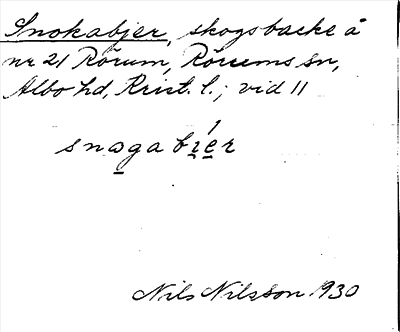 Snokabjer, skogsbacke å
nr 21 Rörum, Rörums sn,
Albo hd, Krist. l.; vid 11
snagabıér
Nils Nilsson 1930